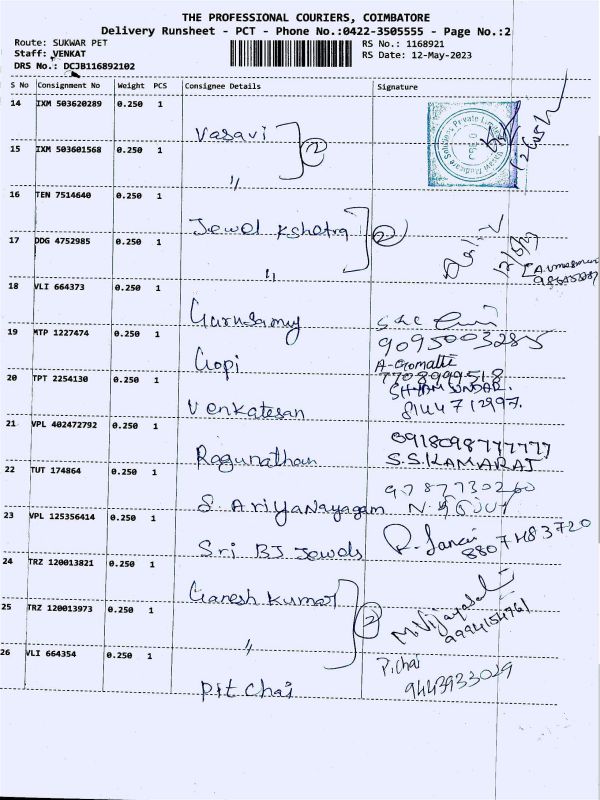 THE PROFESSIONAL COURIERS, COIMBATORE
Delivery Runsheet - PCT - Phone No.:0422-3505555 - Page No.:2
Route: SUKWAR PET
RS No.: 1168921
Staff: VENKAT
RS Date: 12-May-2023
DRS No.: DCJB116892102
S No Consignment No Weight PCS Consignee Details Signature
14 IXM 503620289 0.250 1
Vasavi 2
15 IXM 503601568 0.250 1
"
16 TEN 7514640 0.250 1
Jewel Kshetra 2
17 DDG 4752985 0.250 1
"
18 VLI 664373 0.250 1
Gurusamy
9095003285
19 MTP 1227474 0.250 1
Gopi
A-Gomathi
7708999518
20 TPT 2254130 0.250 1
SHYAM SUNDAR.
Venkatesan
8144712997.
21 VPL 402472792 0.250 1
Ragunathan
S.S.KAMARAJ
22 TUT 174864 0.250 1
9787730260
S. Ariyanayagam
23 VPL 125356414 0.250 1
Sri BJ Jewels
8807483720
24 TRZ 120013821 0.250 1
Ganesh Kumar 2
25 TRZ 120013973 0.250 1
M. Vijayalal
9994154761
"
26 VLI 664354 0.250 1
P. Chai
Pit Chai
9443933029